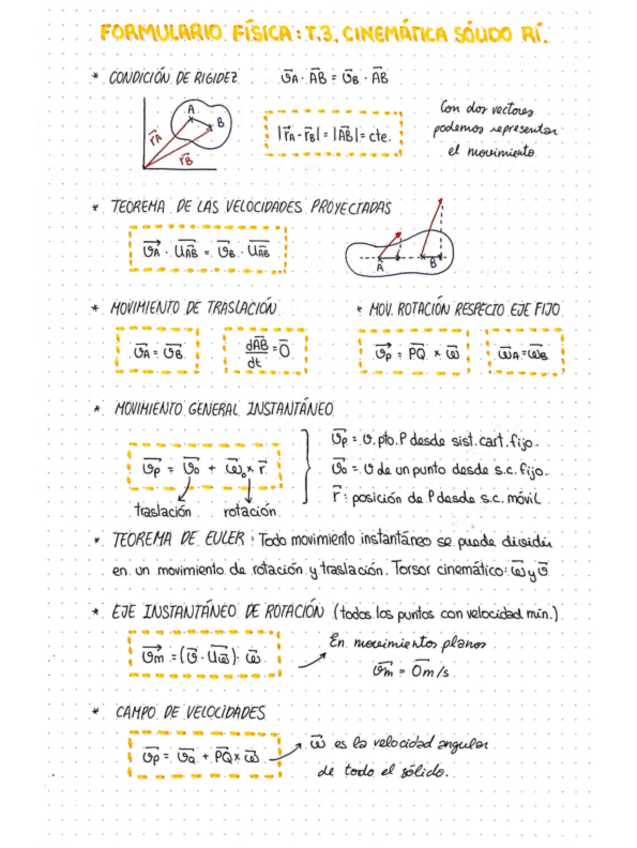 FORMULARIO FÍSICA: T.3. CINEMÁTICA SÓLIDO RÍ.
* CONDICIÓN DE RIGIDEZ
v⃗A · AB⃗ = v⃗B · AB⃗
A
B
r⃗A
r⃗B
|r⃗A - r⃗B| = |AB⃗| = cte.
Con dos vectores
podemos representar
el movimiento
* TEOREMA DE LAS VELOCIDADES PROYECTADAS
v⃗A · u⃗AB = v⃗B · u⃗AB
A
B
* MOVIMIENTO DE TRASLACIÓN
v⃗A = v⃗B
dAB⃗/dt = 0⃗
* MOV. ROTACIÓN RESPECTO EJE FIJO
v⃗p = PQ⃗ × ω⃗
ω⃗A = ω⃗B
* MOVIMIENTO GENERAL INSTANTÁNEO
v⃗p = v⃗o + ω⃗o × r⃗
traslación rotación
v⃗p = v. pto. P desde sist. cart. fijo.
v⃗o = v de un punto desde s.c. fijo.
r⃗: posición de P desde s.c. móvil
* TEOREMA DE EULER: Todo movimiento instantáneo se puede dividir
en un movimiento de rotación y traslación. Torsor cinemático: ω⃗ y v⃗
* EJE INSTANTÁNEO DE ROTACIÓN (todos los puntos con velocidad mín.)
v⃗m = (v⃗ · u⃗ω) · ω⃗
En movimientos planos
v⃗m = 0⃗ m/s
* CAMPO DE VELOCIDADES
v⃗p = v⃗Q + PQ⃗ × ω⃗
ω⃗ es la velocidad angular
de todo el sólido.